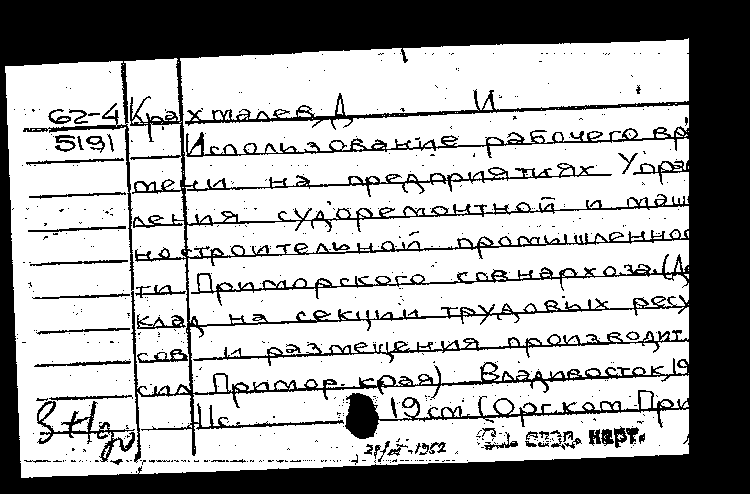 62-4 Крахмалев, Д. И.
5191 Использование рабочего вре
мени на предприятиях Управ
ления судоремонтной и маши
ностроительной промышленнос
ти Приморского совнархоза. (До
клад на секции трудовых ресур
сов и размещения производит.
сил Примор. края) Владивосток, 19
11с. 19 см. (Орг. ком. При
-1962 карт.